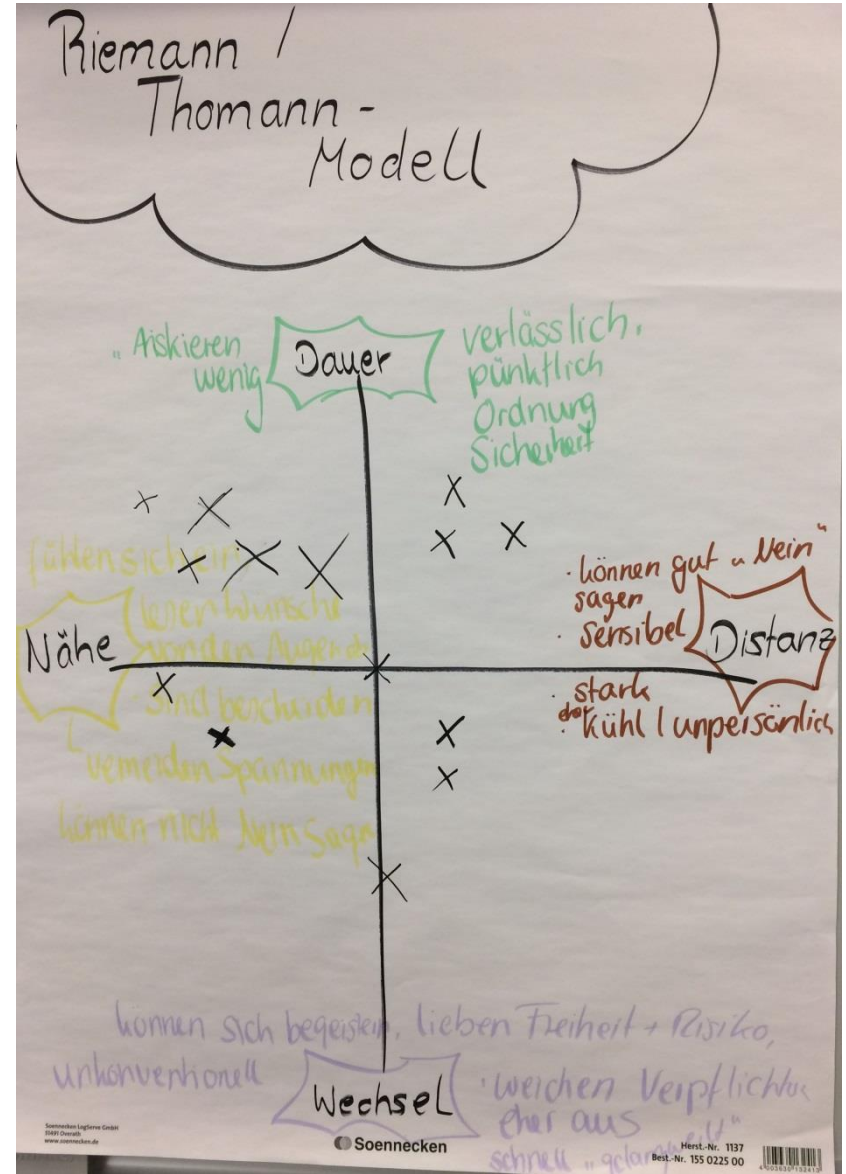 Riemann /
Thomann -
Modell
„Riskieren
wenig
Dauer
verlässlich,
pünktlich
Ordnung
Sicherheit
fühlen sich ein,
lesen Wünsche
von den Augen
Nähe
- sind bescheiden
vermeiden Spannungen
können nicht Nein Sagen
· können gut „Nein"
sagen
· Sensibel
Distanz
· stark
· eher kühl / unpersönlich
können sich begeistern, lieben Freiheit + Risiko,
unkonventionell
Wechsel
· weichen
eher aus
schnell „gelangweilt"
Soennecken LogServe GmbH
51491 Overath
www.soennecken.de
Soennecken
Herst.-Nr. 1137
Best.-Nr. 155 0225 00